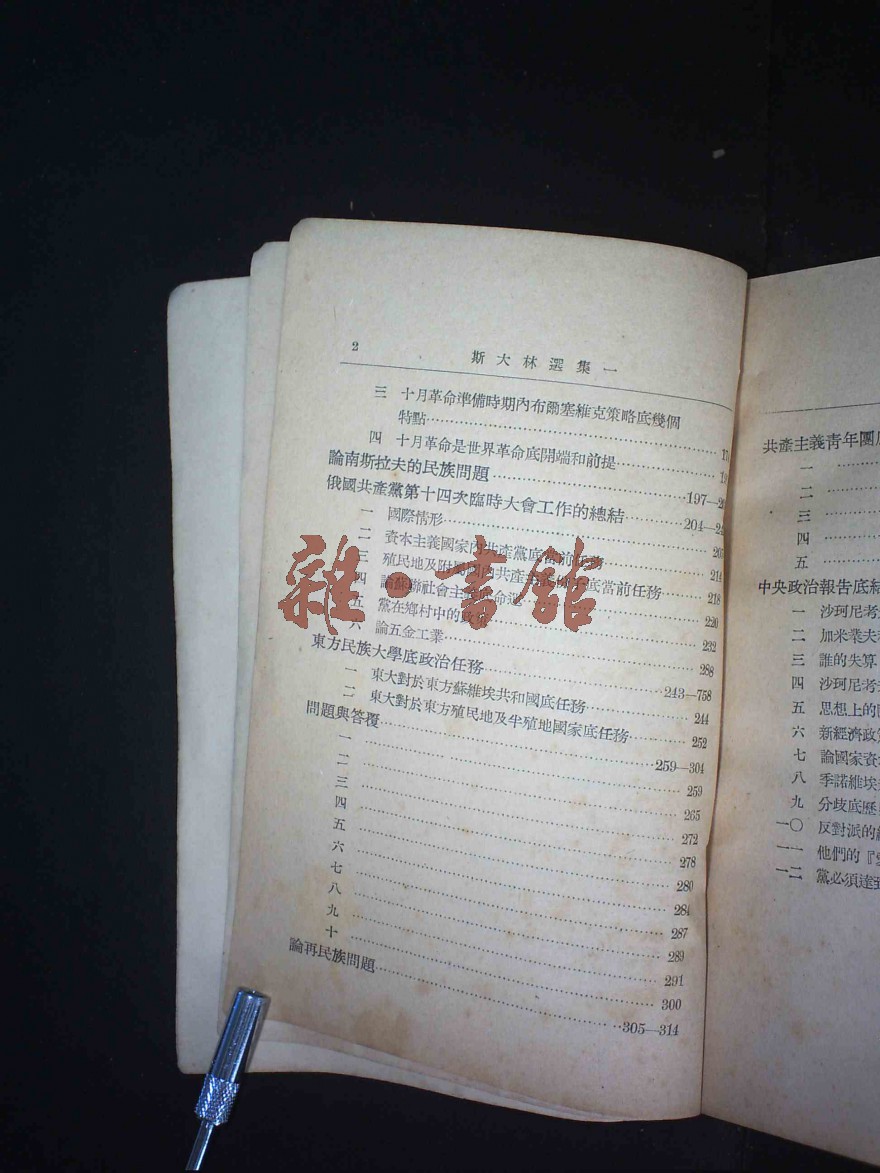 2
斯大林選集一
三 十月革命準備時期內布爾塞維克策略底幾個
特點
四 十月革命是世界革命底開端和前提
論南斯拉夫的民族問題 197—
俄國共產黨第十四次臨時大會工作的總結 204—
一 國際情形
二 資本主義國家內共產黨底當前任務 214
三 殖民地及附屬國內共產 底當前任務 218
四 論蘇聯社會主義底命運 220
五 黨在鄉村中的政策 232
六 論五金工業 288
東方民族大學底政治任務 243—758
一 東大對於東方蘇維埃共和國底任務 244
二 東大對於東方殖民地及半殖地國家底任務 252
問題與答覆 259—304
一 259
二 265
三 272
四 278
五 280
六 284
七 287
八 289
九 291
十 300
論再民族問題 305—314
共產主義青年團
一
二
三
四
五
中央政治報告底結
一 沙珂尼考
二 加米業夫
三 誰的失算
四 沙珂尼考
五 思想上的
六 新經濟政
七 論國家資
八 季諾維埃
九 分歧底歷
一〇 反對派的
一一 他們的『
一二 黨必須達到
雜·書館